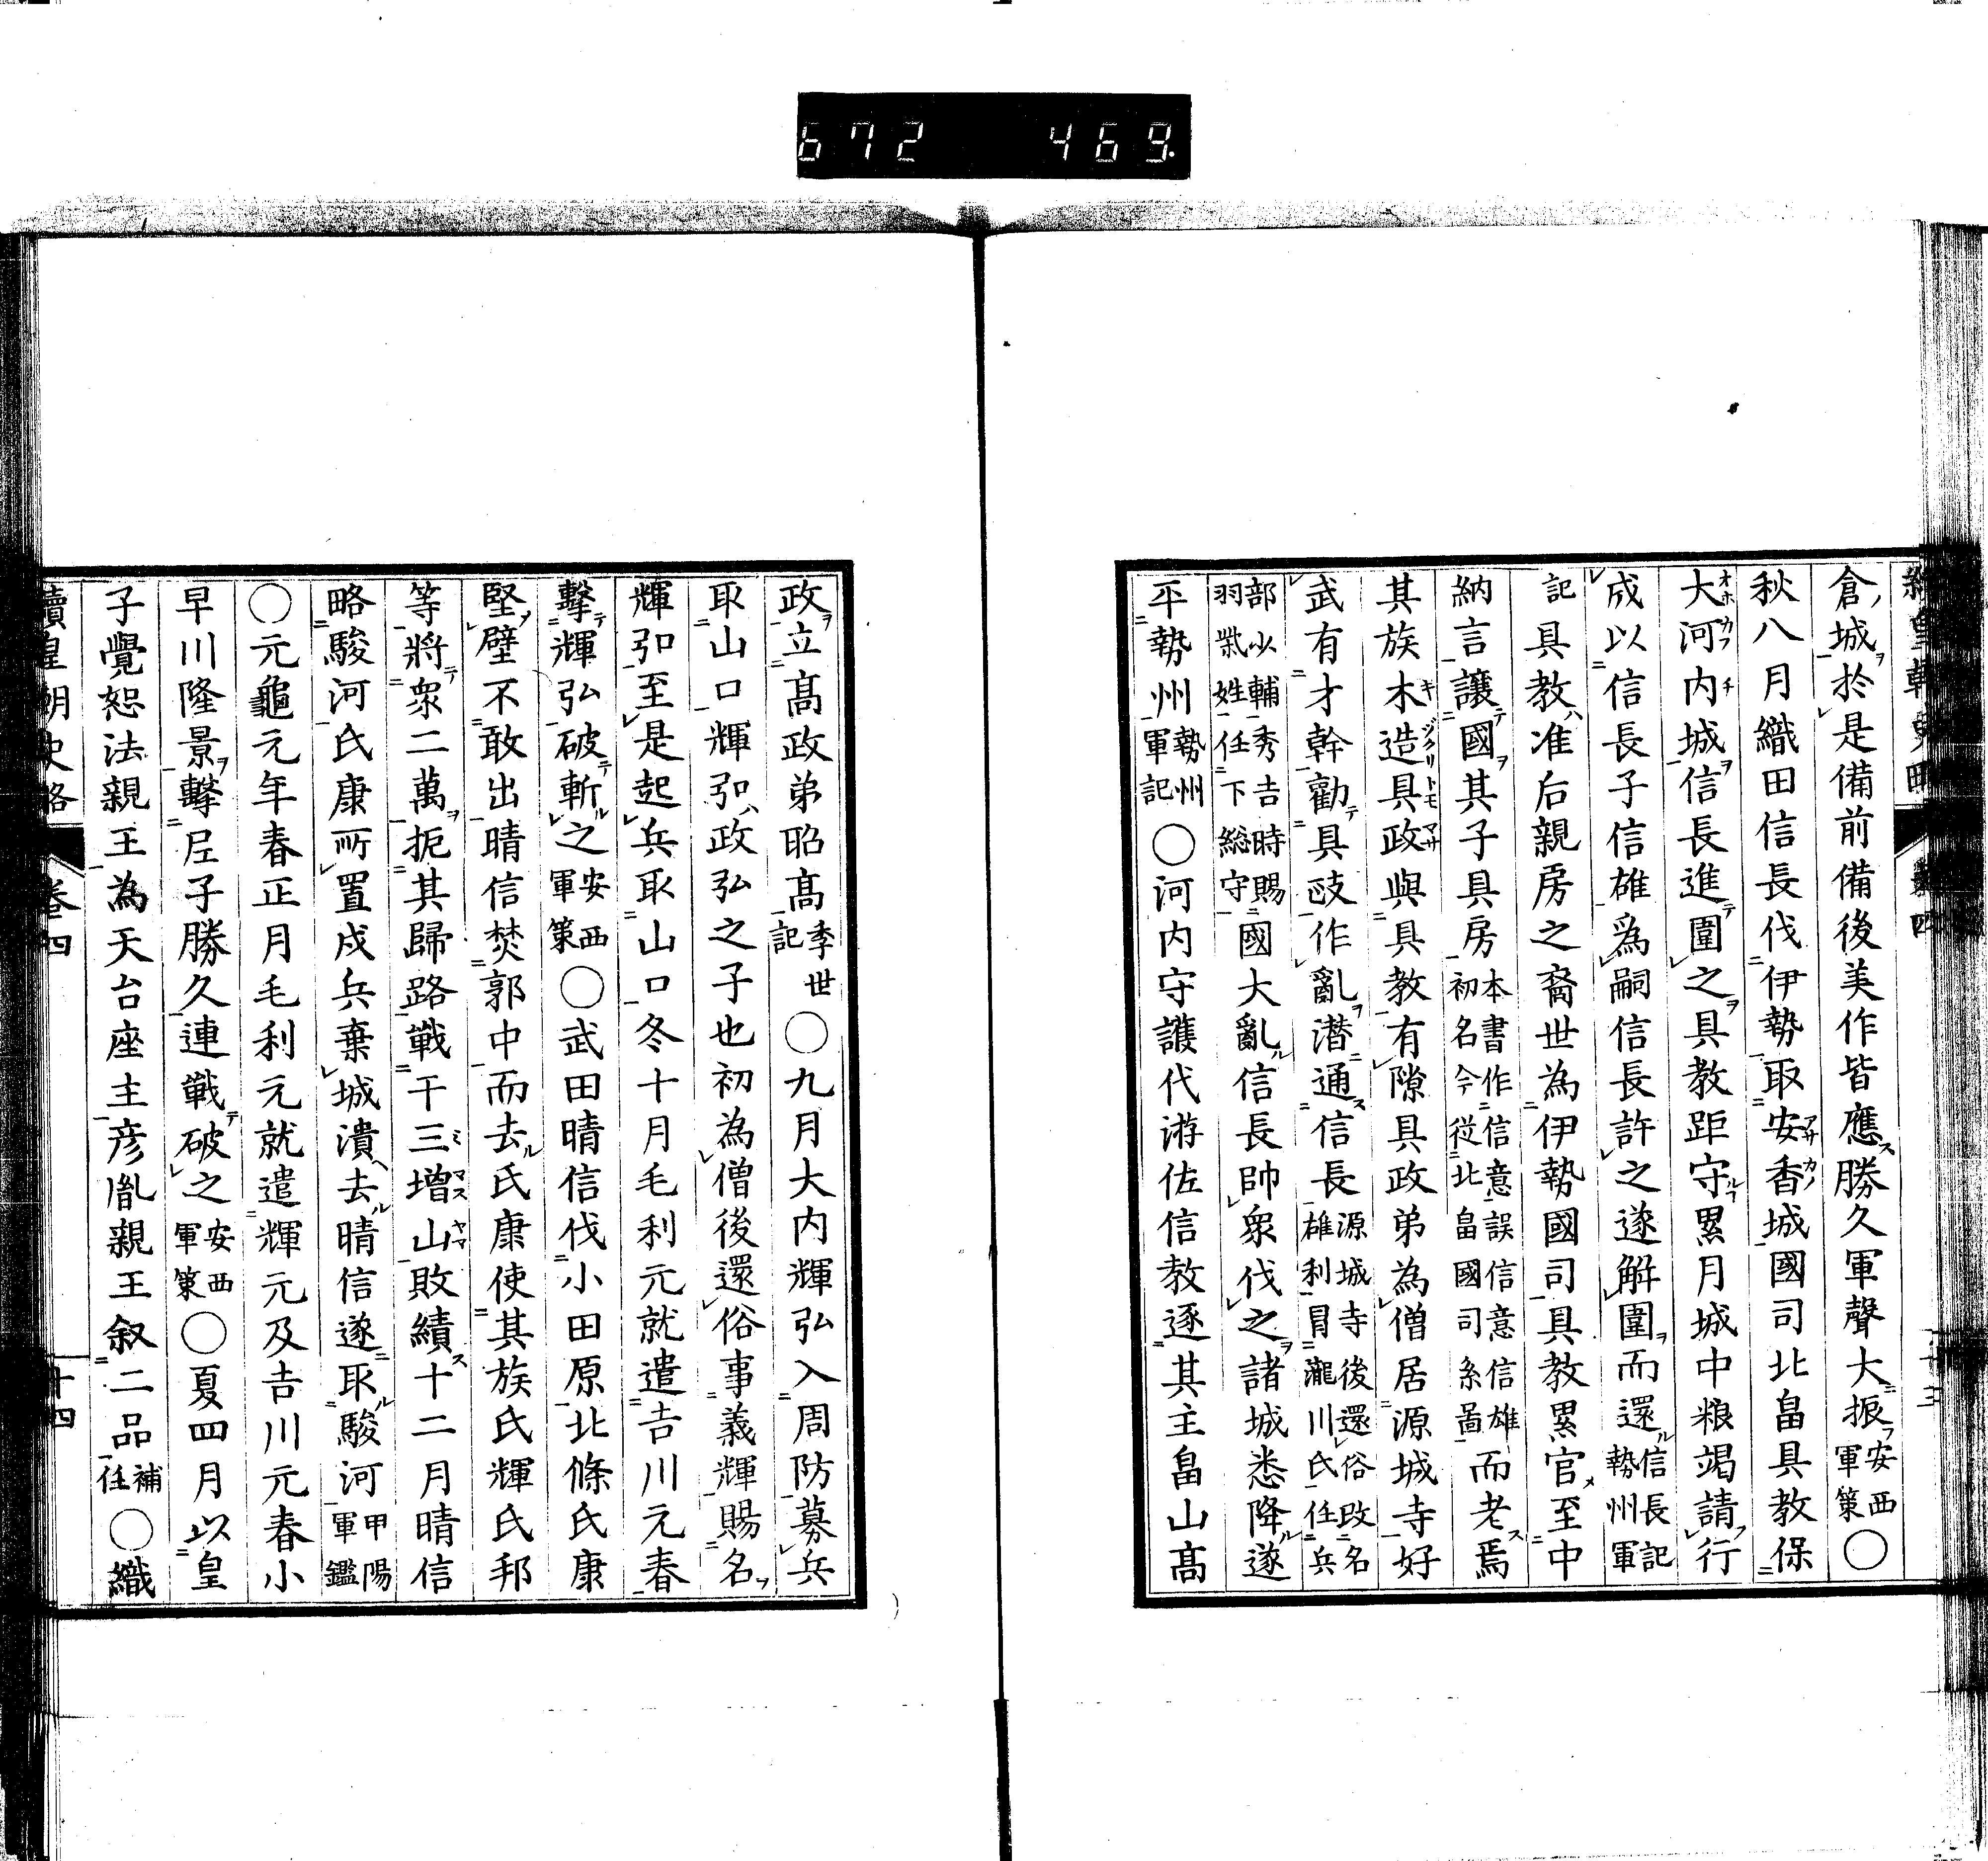 672 469.
倉城於是備前備後美作皆應勝久軍聲大振安西軍策〇
秋八月織田信長伐伊勢取安香城國司北畠具教保
大河内城信長進圍之具教距守累月城中粮竭請行
成以信長子信雄爲嗣信長許之遂解圍而還信長記勢州軍
記具教准后親房之裔世為伊勢國司具教累官至中
納言讓國其子具房本書作信意誤信意信雄初名今從北畠國司系圖而老焉
其族木造具政與具教有隙具政弟為僧居源城寺好
武有才幹勸具政作亂潜通信長源城寺後還俗改名雄利冒瀧川氏任兵
部少輔秀吉時賜羽柴姓任下総守國大亂信長帥衆伐之諸城悉降遂
平勢州勢州軍記〇河内守護代游佐信教逐其主畠山高
政立髙政弟昭髙季世記〇九月大内輝弘入周防募兵
取山口輝弘政弘之子也初為僧後還俗事義輝賜名
輝弘至是起兵取山口冬十月毛利元就遣吉川元春
擊輝弘破斬之安西軍策〇武田晴信伐小田原北條氏康
堅壁不敢出晴信焚郭中而去氏康使其族氏輝氏邦
等將衆二萬扼其歸路戰于三增山敗績十二月晴信
略駿河氏康所置戍兵棄城潰去晴信遂取駿河甲陽軍鑑
〇元龜元年春正月毛利元就遣輝元及吉川元春小
早川隆景擊尼子勝久連戰破之安西軍策〇夏四月以皇
子覺恕法親王為天台座主彦胤親王叙二品補任〇織
續皇朝史略 卷四 十四